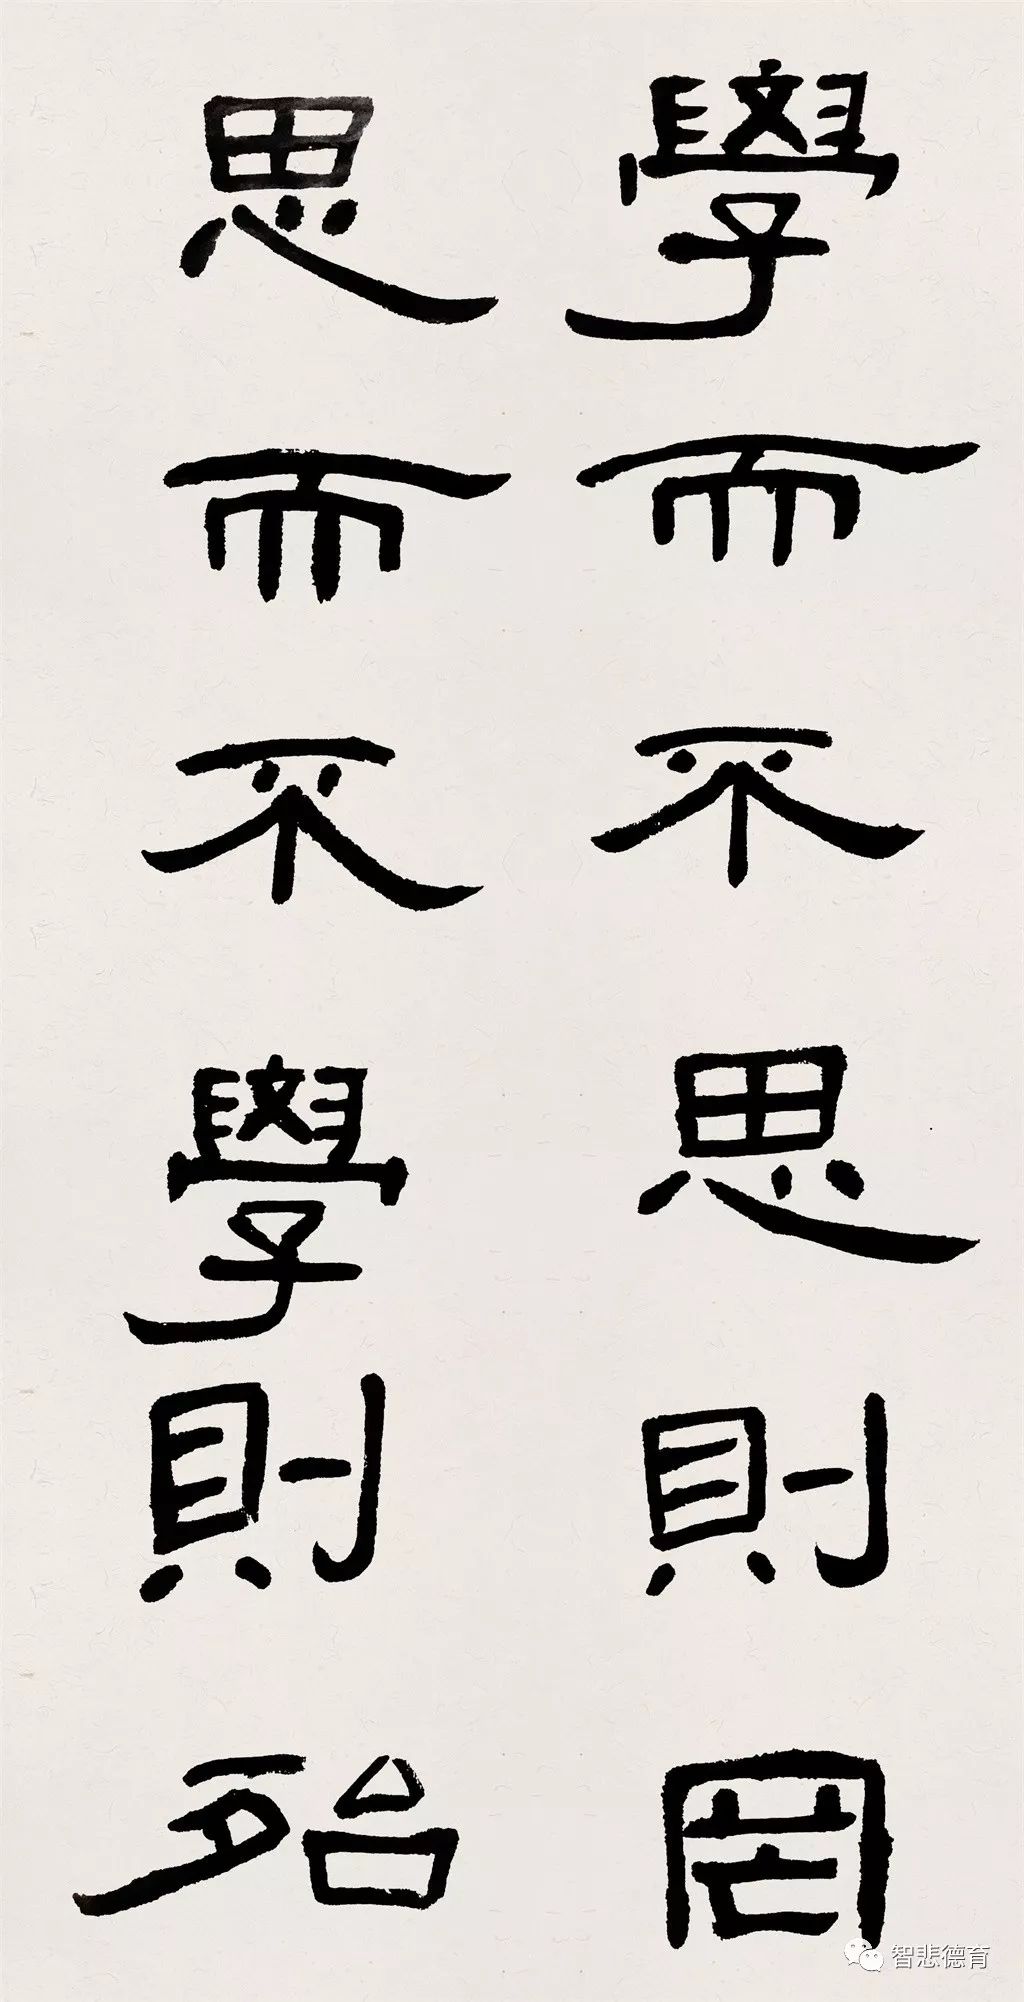 學而不思則罔
思而不學則殆
智悲德育